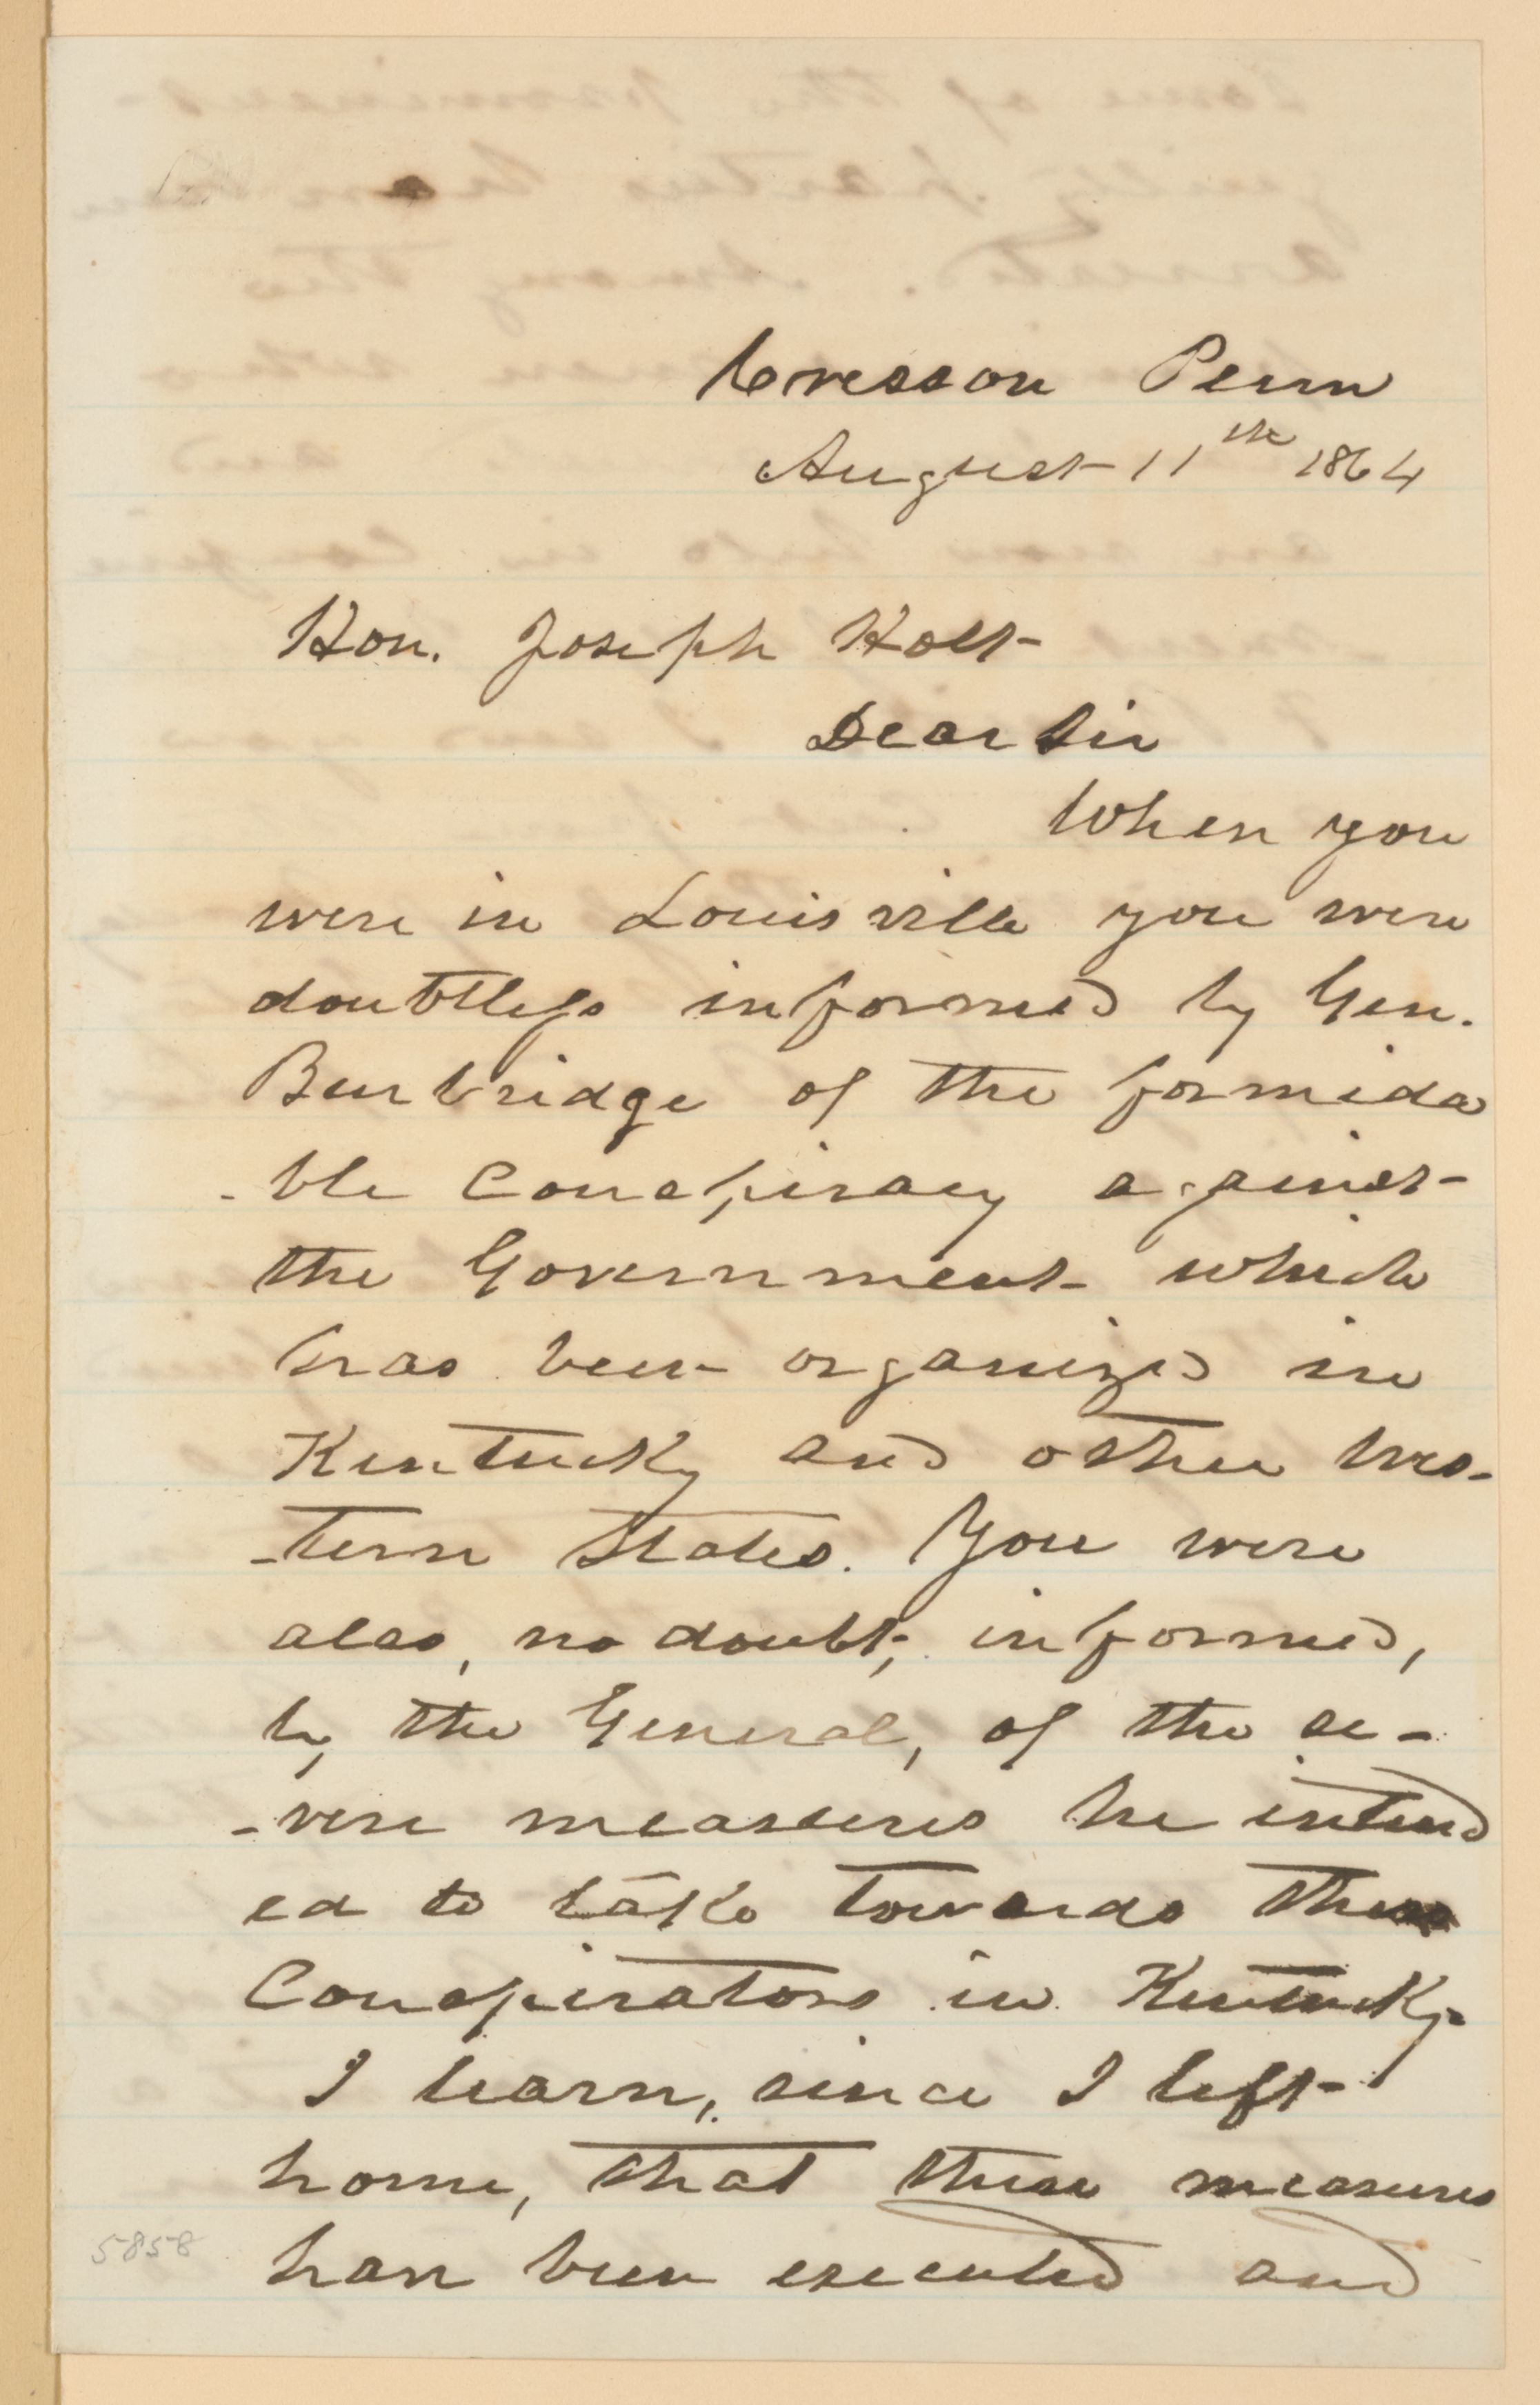 Cresson Penn
August 11th 1864
Hon. Joseph Holt
Dear Sir
When you
were in Louisville you were
doubtless informed by Gen.
Burbridge of the formida
-ble Conspiracy against
the Government which
has been organized in
Kentucky and other Wes-
-tern States. You were
also, no doubt, informed,
by the General, of the se-
-vere measures he intend
ed to take towards these
Conspirators in Kentucky.
I learn, since I left
home, that these measures
have been executed and
5858